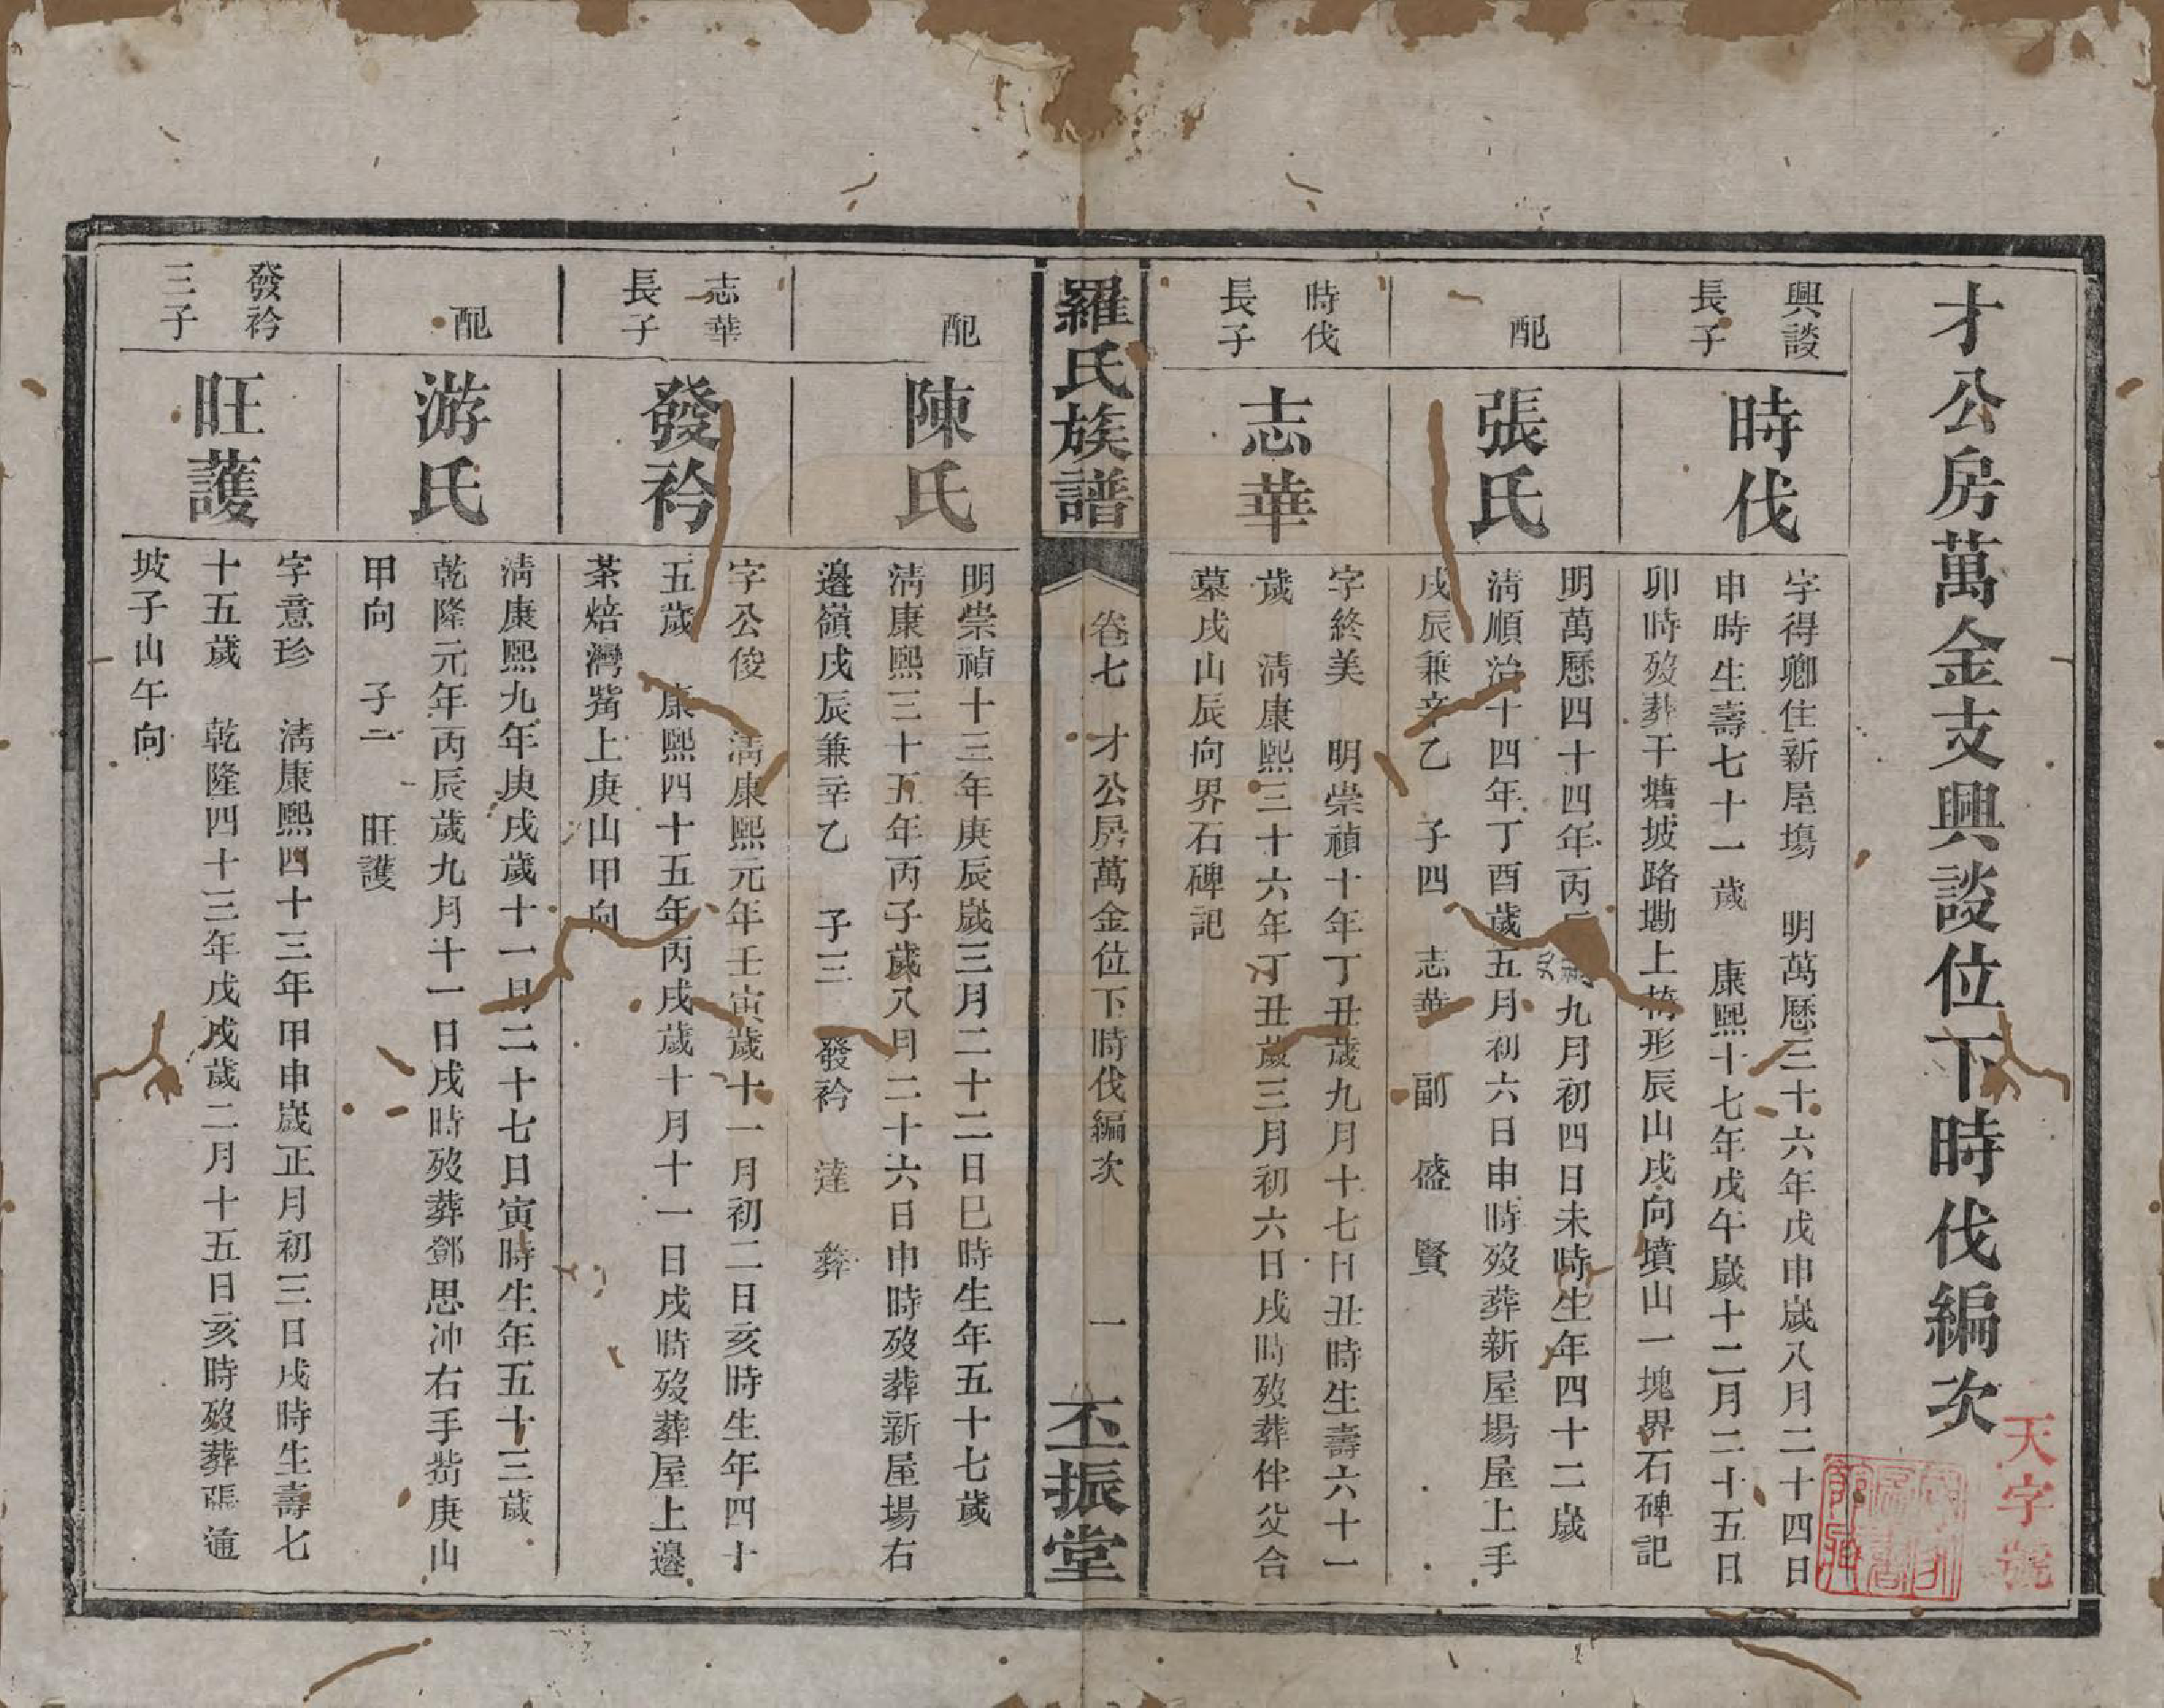 才公房萬金支興談位下時伐編次
天字號
興談
長子
時伐
字得卿住新屋塲　明萬厯三十六年戊申嵗八月二十四日
申時生壽七十一歲　康熙十七年戊午嵗十二月二十五日
卯時歿葬干塘坡路墈上椅形辰山戌向墳山一塊界石碑記
配
張氏
明萬厯四十四年丙　九月初四日未時生年四十二嵗
淸順治十四年丁酉歲五月初六日申時歿葬新屋場屋上手
戌辰兼辛乙　子四　志華　副　盛　賢
時伐
長子
志華
字終美　明崇禎十年丁丑歲九月十七日丑時生壽六十一
歲　淸康熙三十六年丁丑嵗三月初六日戌時歿葬伴父合
墓戌山辰向界石碑記
羅氏族譜
卷七　才公房萬金位下時伐編次　一
丕振堂
配
陳氏
明崇禎十三年庚辰嵗三月二十二日巳時生年五十七歲
淸康熙三十五年丙子歲又月二十六日申時歿葬新屋場右
邊嶺戌辰兼辛乙　子三　發衿　達　彝
志華
長子
發衿
字公俊　淸康熙元年壬寅歲十一月初二日亥時生年四十
五歲　康熙四十五年丙戌歲十月十一日戌時歿葬屋上邊
茶焙灣嘴上庚山甲向
配
游氏
淸康熙九年庚戌歲十一月二十七日寅時生年五十三歲
乾隆元年丙辰歲九月十一日戌時歿葬鄧思冲右手嵜庚山
甲向　子二　旺護
發衿
三子
旺護
字意珍　淸康熙四十三年甲申嵗正月初三日戌時生壽七
十五歲　乾隆四十三年戊戌歲二月十五日亥時歿葬張通
坡子山午向